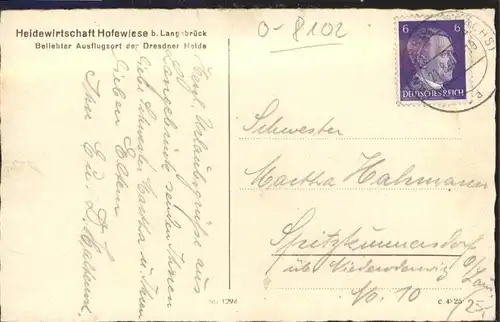 Heidewirtschaft Hofewiese b. Langebrück
Beliebter Ausflugsort der Dresdner Heide
O-8102
6 6
DEUTSCHES REICH
Herzl. Urlaubsgrüße aus
Langebrück senden Ihnen
liebe Schwester Martha u. Ihren
lieben Eltern
Ihre
Schwester
Martha Hahmann
Spitzkunnersdorf
üb. Niederoderwitz
No. 10